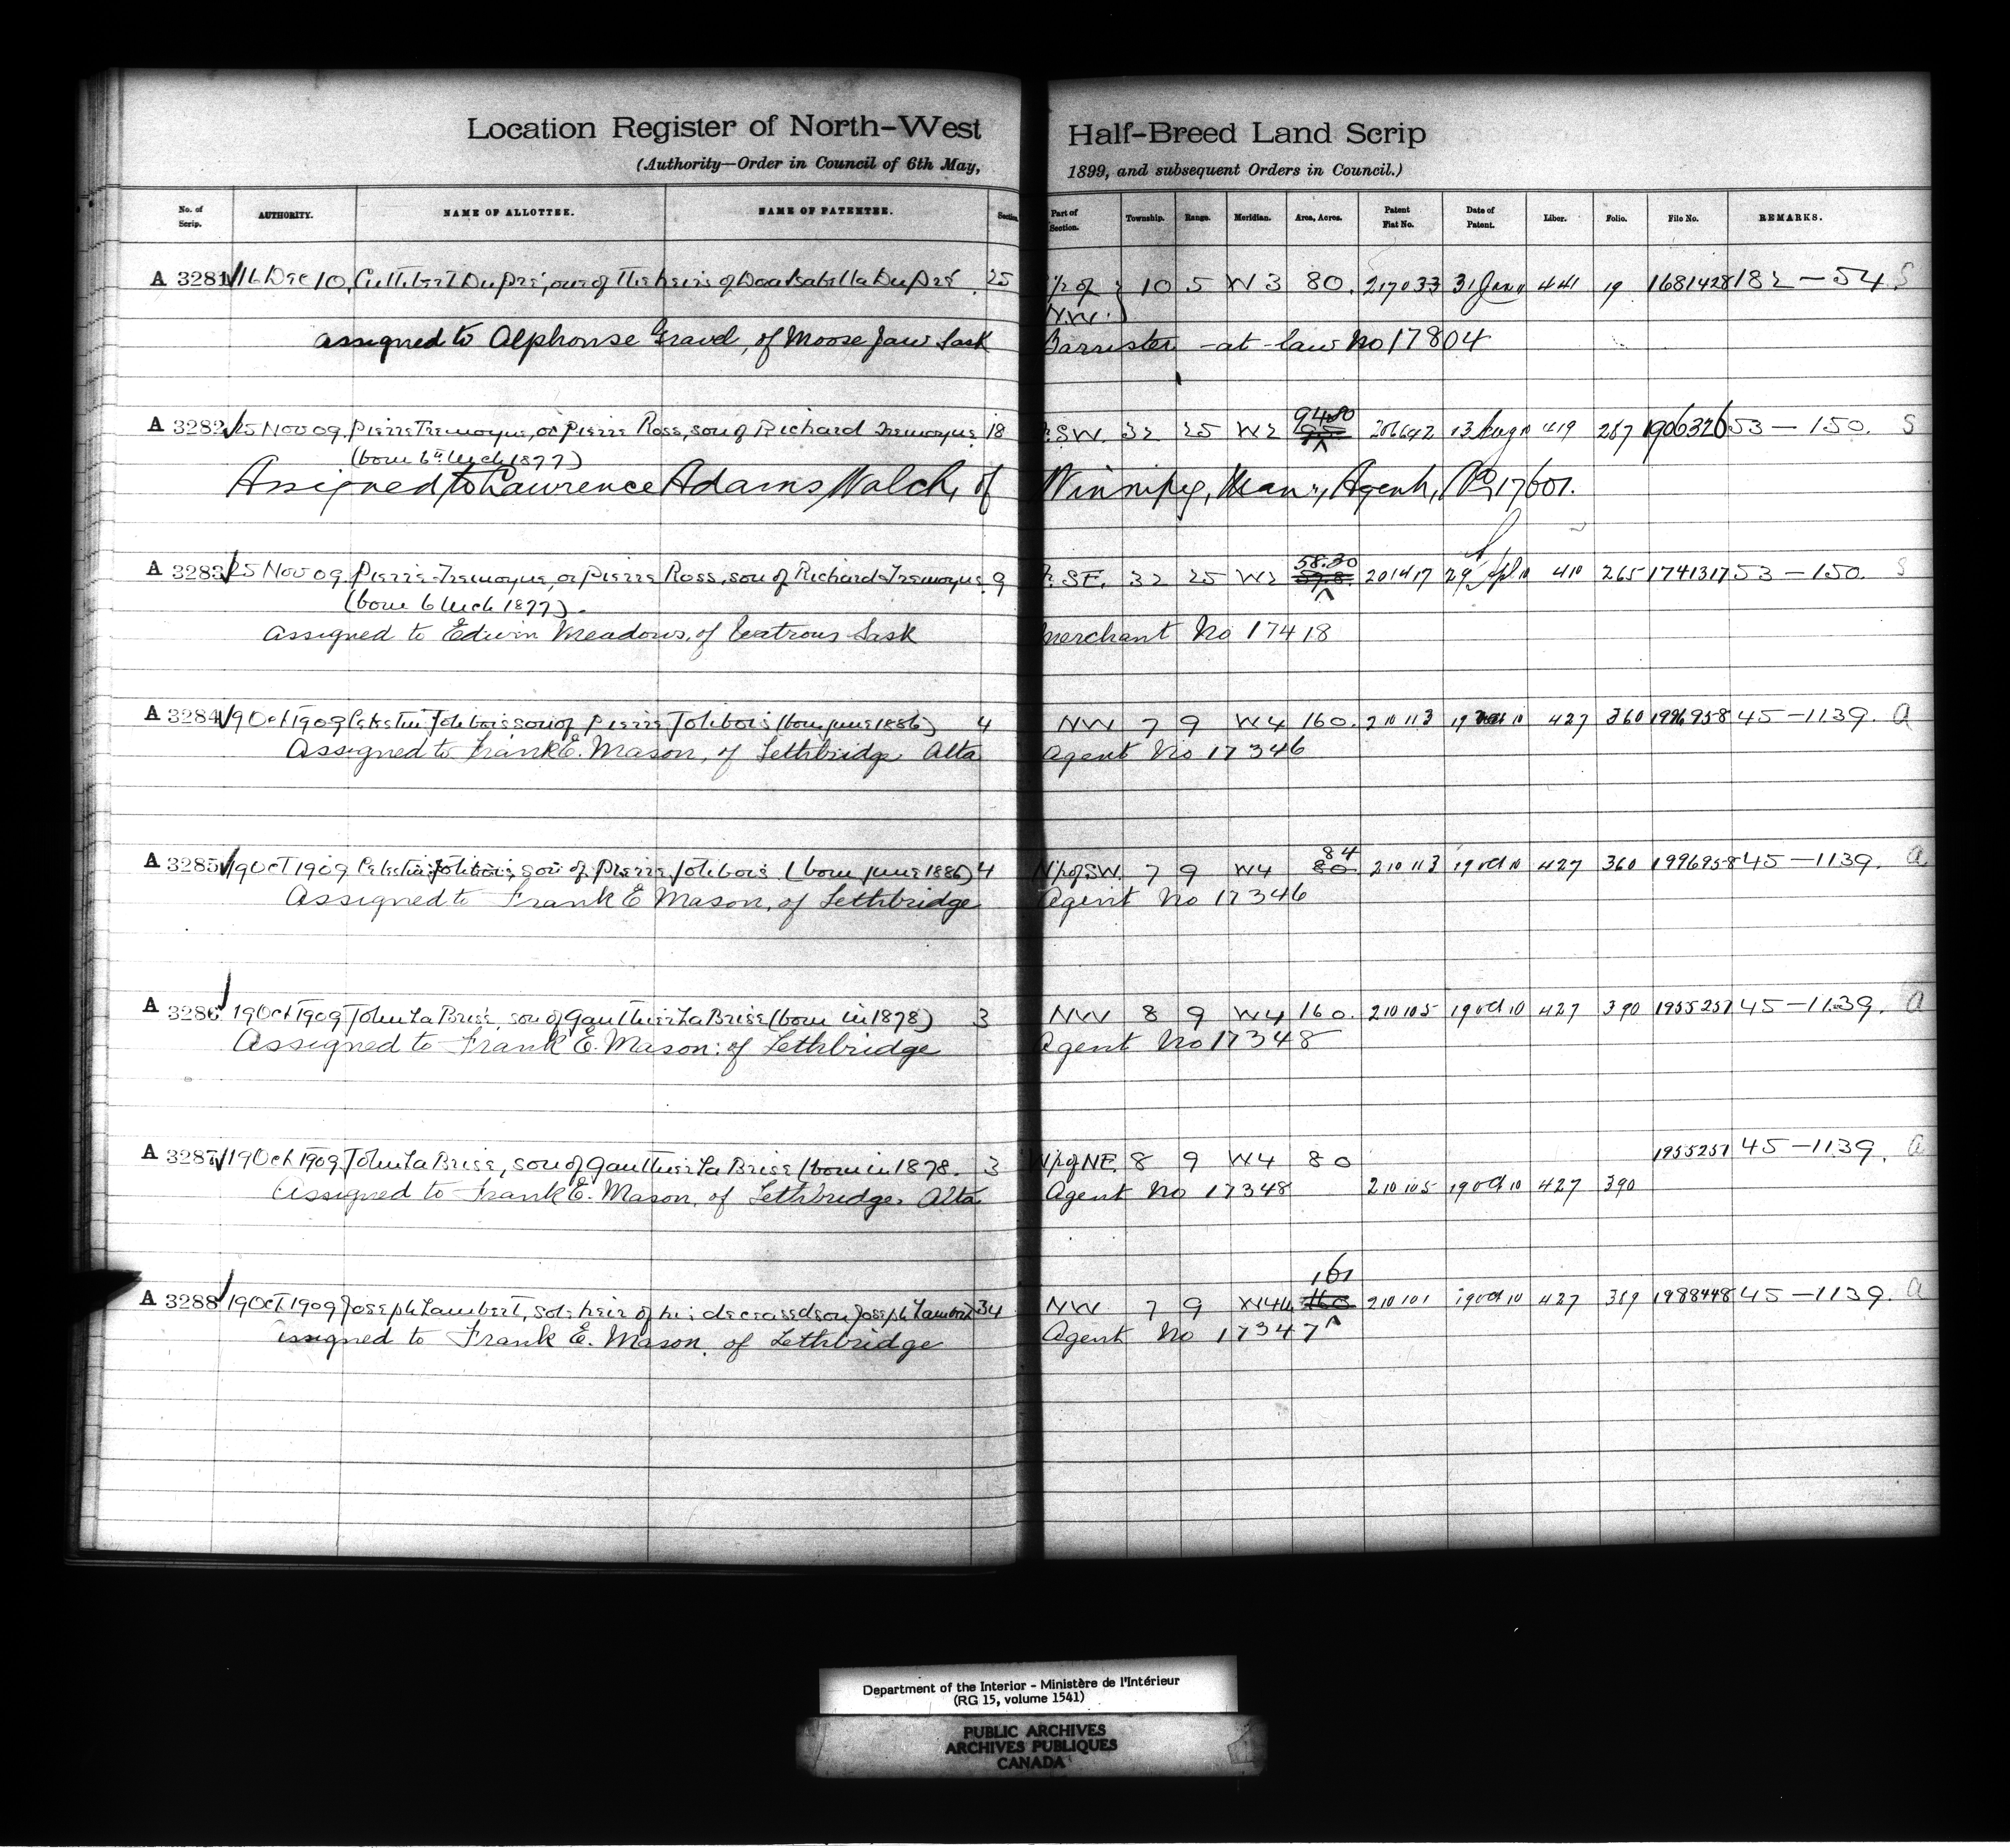 Location Register of North-West Half-Breed Land Scrip
(Authority—Order in Council of 6th May, 1899, and subsequent Orders in Council.)
No. of Scrip. AUTHORITY. NAME OF ALLOTTEE. NAME OF PATENTEE. Section. Part of Section. Township. Range. Meridian. Area, Acres. Patent Fiat No. Date of Patent. Liber. Folio. File No. REMARKS.
A 3281 16 Dec 10. Cuthbert Dupré, one of the heirs of Isabella Dupré 25 of 10 5 W 3 80. 217033 31 Jan 441 19 1681428 182-54 S
N.W.
assigned to Alphonse Gravel, of Moose Jaw Sask Barrister-at-law No 17804
A 3282 25 Nov 09. Pierre Tremoyne, or Pierre Ross, son of Richard Tremoyne 18 SW. 32 25 W2 94.80 206642 13 Aug 10 419 287 1906326 53-150. S
(born 6th Mch 1877)
Assigned to Lawrence Adams Walch, of Winnipeg, Man., Agent, No 17601.
A 3283 25 Nov 09. Pierre Tremoyne, or Pierre Ross, son of Richard Tremoyne. 9 SE. 32 25 W2 58.30 201417 29 Apl 10 410 265 1741317 53-150. S
(born 6 Mch 1877).
assigned to Edwin Meadows, of Watrous Sask Merchant No 17418
A 3284 19 Oct 1909 Celestin Jolibois son of Pierre Jolibois (born June 1886) 4 NW 7 9 W4 160. 210113 19 10 427 360 1996958 45-1139. a
Assigned to Frank E. Mason, of Lethbridge Alta Agent No 17346
A 3285 19 Oct 1909 Celestin Jolibois, son of Pierre Jolibois (born June 1886) 4 N½ of SW. 7 9 W4 84 80 210113 19 Oct 10 427 360 1996958 45-1139. a
Assigned to Frank E Mason, of Lethbridge Agent No 17346
A 3286 19 Oct 1909 John La Brise, son of Gauthier La Brise (born in 1878) 3 NW 8 9 W4 160. 210105 19 Oct 10 427 390 1955251 45-1139. a
Assigned to Frank E. Mason of Lethbridge Agent No 17348
A 3287 19 Oct 1909 John La Brise, son of Gauthier La Brise (born in 1878. 3 of NE. 8 9 W4 80 1955251 45-1139. a
Assigned to Frank E. Mason, of Lethbridge, Alta Agent No 17348 210105 19 Oct 10 427 390
A 3288 19 Oct 1909 Joseph Lambert, sole heir of his deceased son Joseph Lambert 34 NW 7 9 W4 161 160 210101 19 Oct 10 427 389 1988448 45-1139. a
assigned to Frank E. Mason, of Lethbridge Agent No 17347
Department of the Interior - Ministère de l'Intérieur
(RG 15, volume 1541)
PUBLIC ARCHIVES
ARCHIVES PUBLIQUES
CANADA